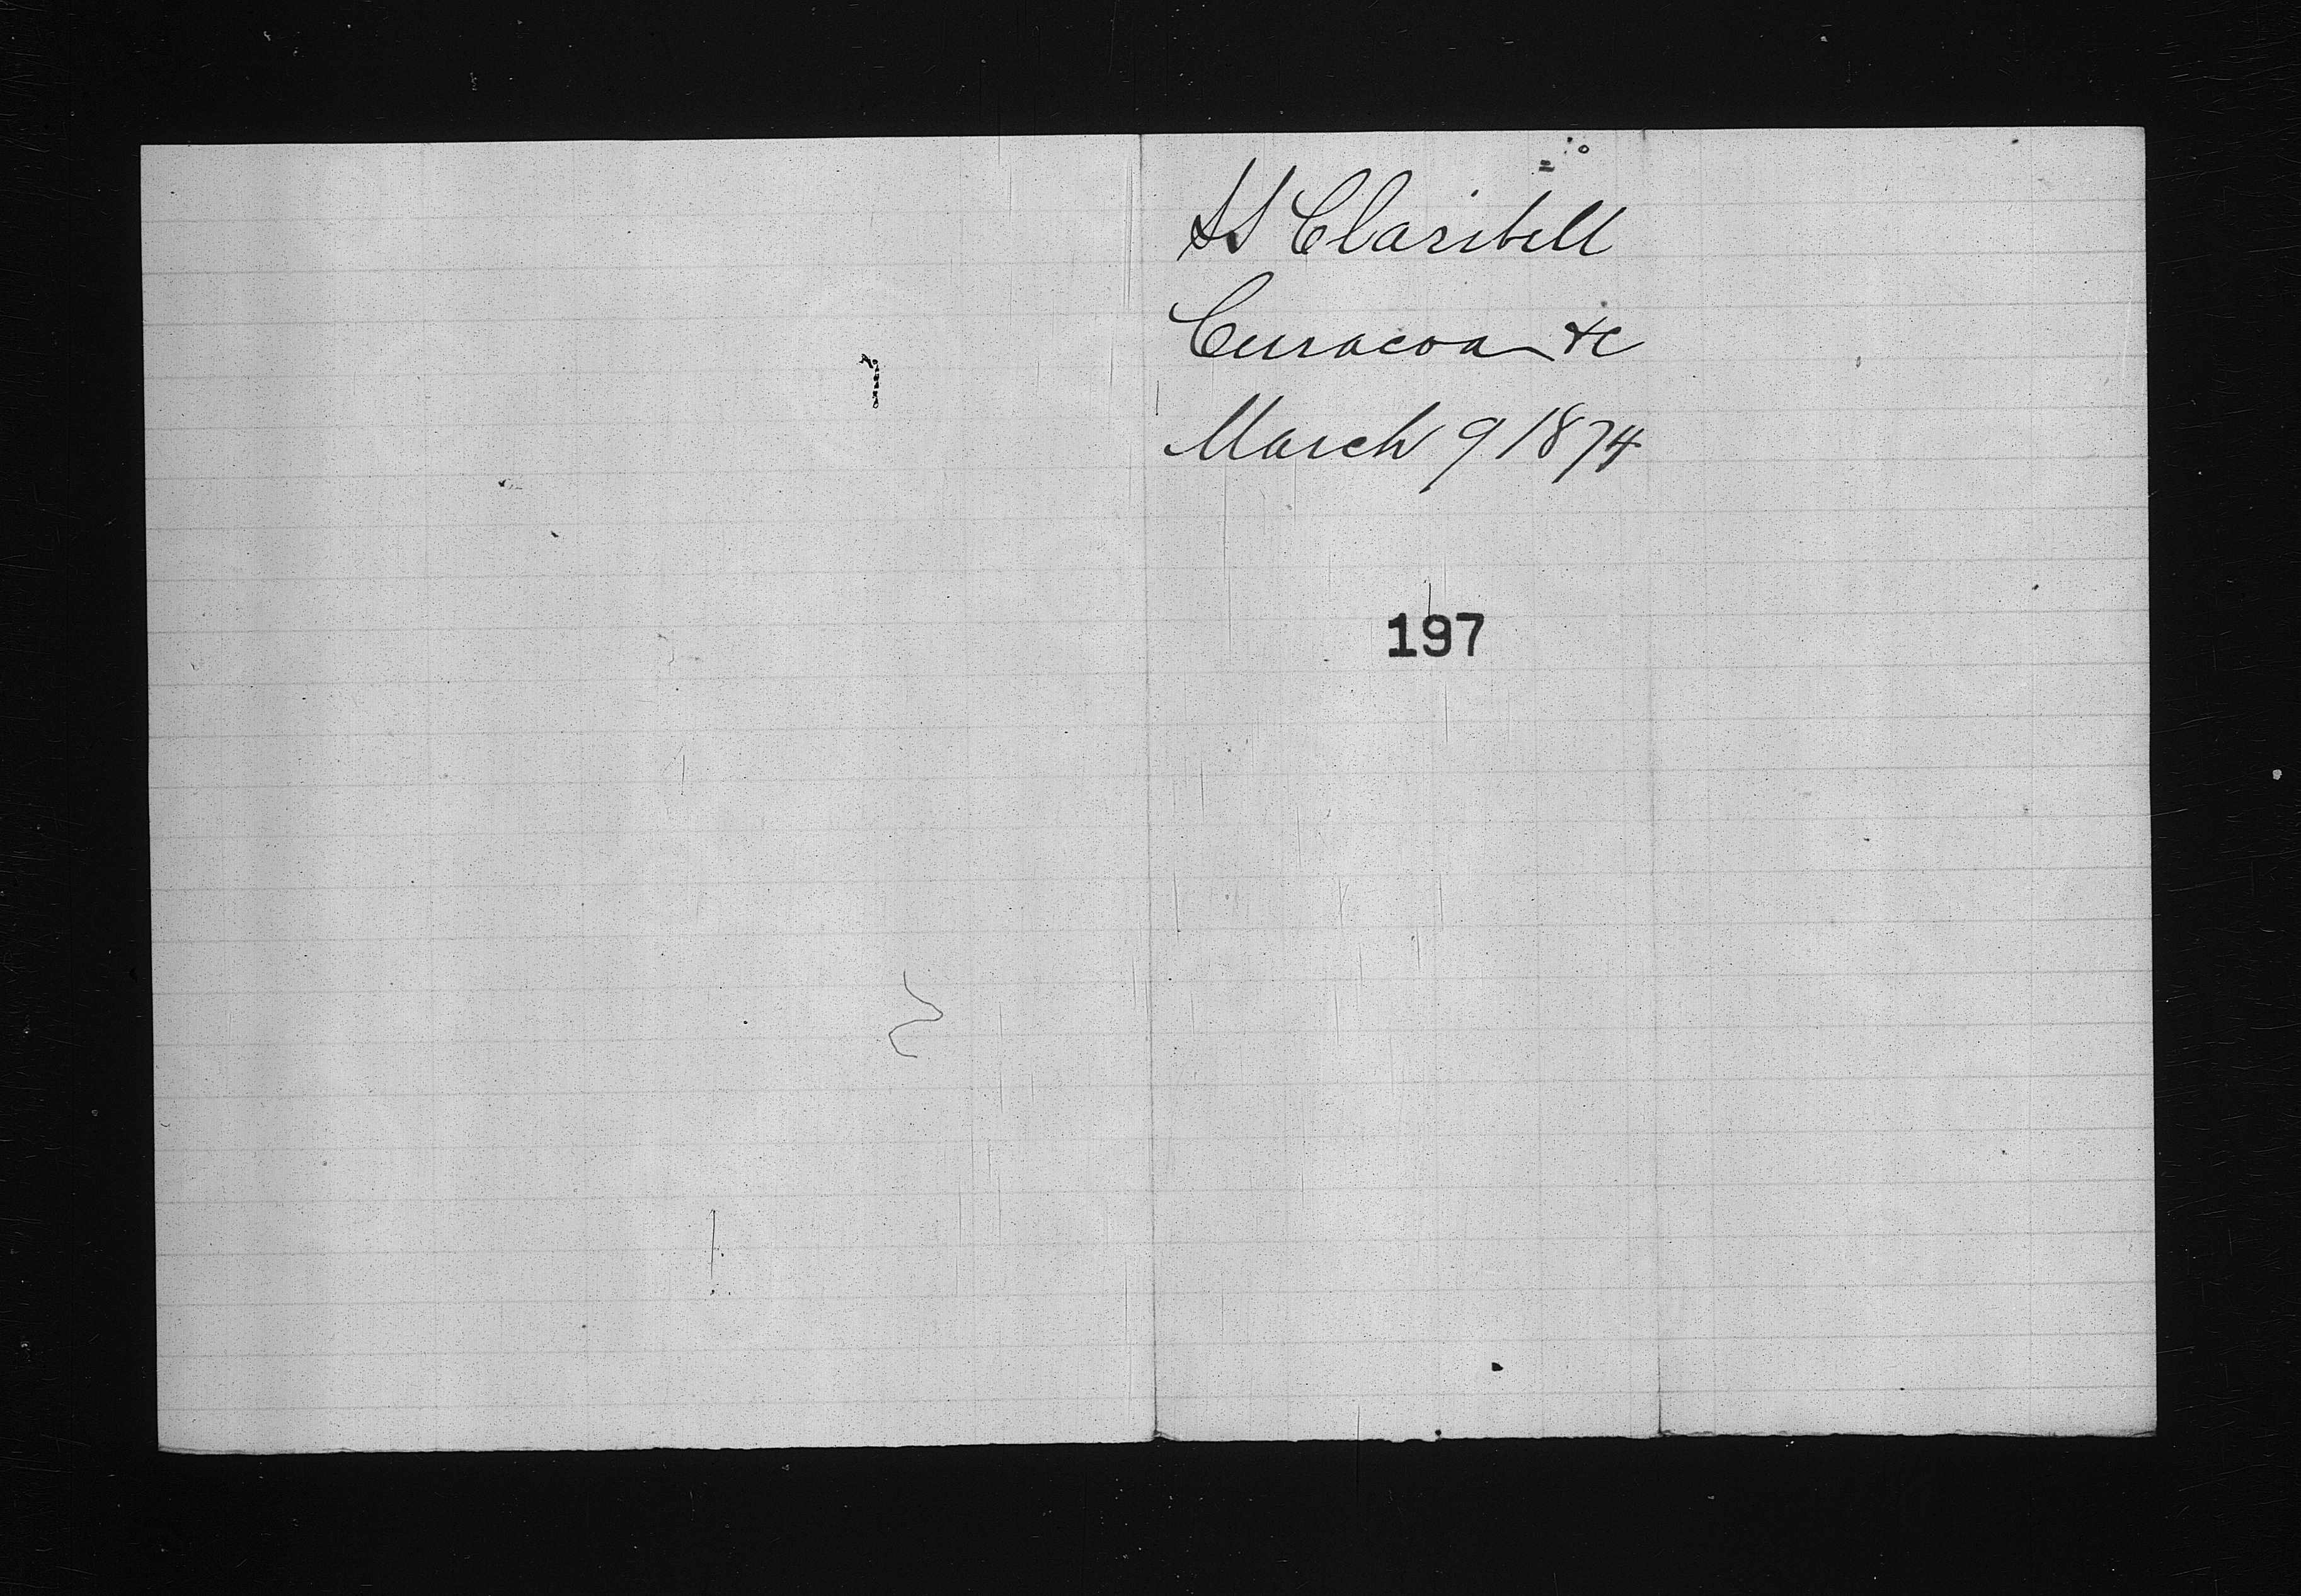 SS Claribell
Curacoa &c
March 9 1874
197